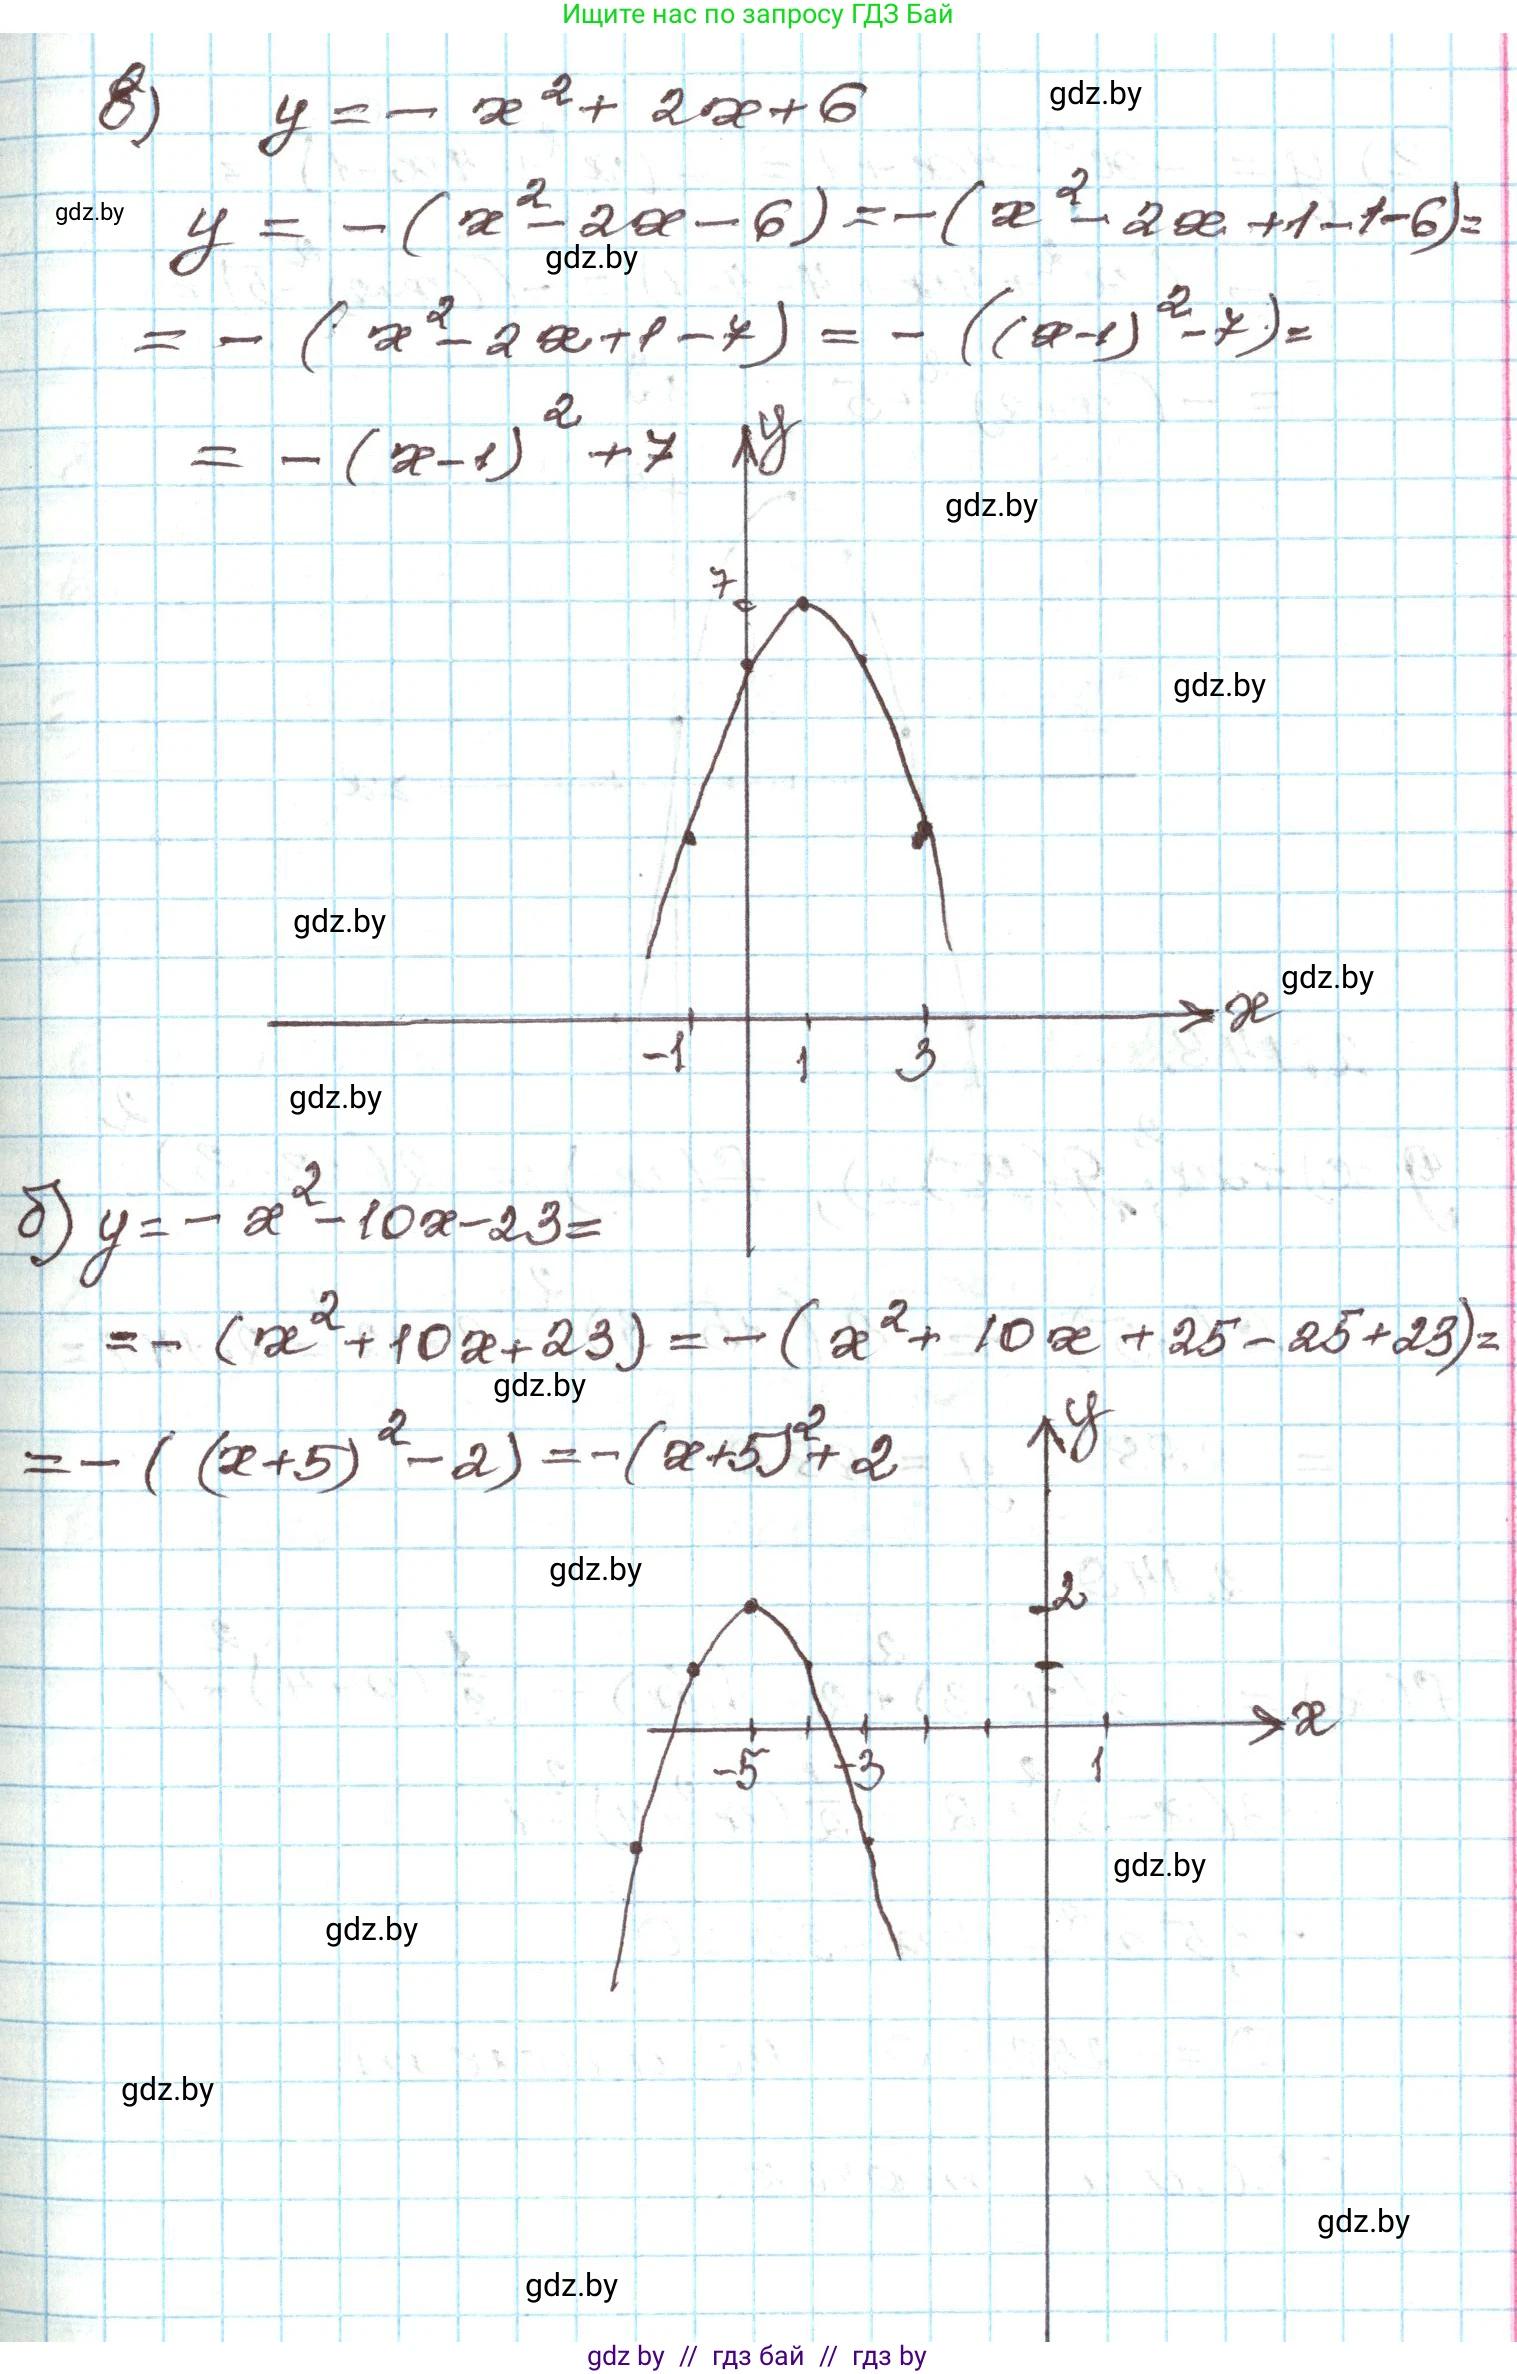 Ищите нас по запросу ГДЗ Бай
в) y = - x² + 2x + 6
gdz.by
gdz.by
y = - (x² - 2x - 6) = - (x² - 2x + 1 - 1 - 6) =
gdz.by
= - (x² - 2x + 1 - 7) = - ((x-1)² - 7) =
= - (x-1)² + 7
y
gdz.by
7
gdz.by
gdz.by
gdz.by
x
-1 1 3
gdz.by
б) y = - x² - 10x - 23 =
= - (x² + 10x + 23) = - (x² + 10x + 25 - 25 + 23) =
gdz.by
y
= - ((x+5)² - 2) = - (x+5)² + 2
gdz.by
2
x
-5 -3 1
gdz.by
gdz.by
gdz.by
gdz.by
gdz.by
gdz by // гдз бай // гдз by